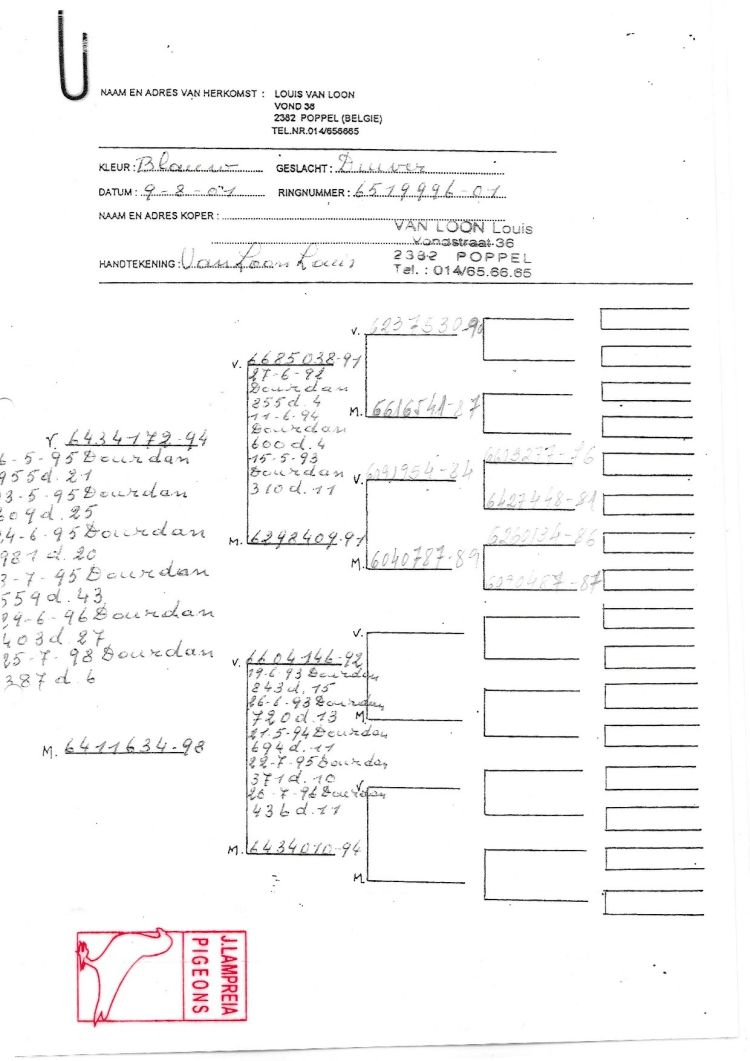 NAAM EN ADRES VAN HERKOMST : LOUIS VAN LOON
VOND 36
2382 POPPEL (BELGIE)
TEL.NR.014/656665
KLEUR : Blauw GESLACHT : Duiver
DATUM : 9-8-01 RINGNUMMER : 6519996-01
NAAM EN ADRES KOPER :
VAN LOON Louis
Vondstraat 36
2382 POPPEL
Tel. : 014/65.66.65
HANDTEKENING : Van Loon Louis
V. 6434172-94
6-5-95 Dourdan
955 d. 21
3-5-95 Dourdan
609 d. 25
4-6-95 Dourdan
981 d. 20
3-7-95 Dourdan
559 d. 43
29-6-96 Dourdan
403 d. 27
25-7-98 Dourdan
387 d. 6
M. 6411634-98
V. 6685038-91
27-6-92
Dourdan
255 d. 4
11-6-94
Dourdan
600 d. 4
15-5-93
Dourdan
310 d. 11
M. 6298409-91
V. 6604146-92
19-6 93 Dourdan
243 d. 15
26-6-93 Dourdan
720 d. 13
21-5-94 Dourdan
694 d. 11
22-7-95 Dourdan
371 d. 10
26-7-96 Dourdan
436 d. 11
M. 6434010-94
V. 6237530-90
M. 6616541-87
V. 6091954-84
M. 6040787-89
V.
M.
V.
M.
6427448-81
6260134-86
6090487-87
J.LAMPREIA
PIGEONS